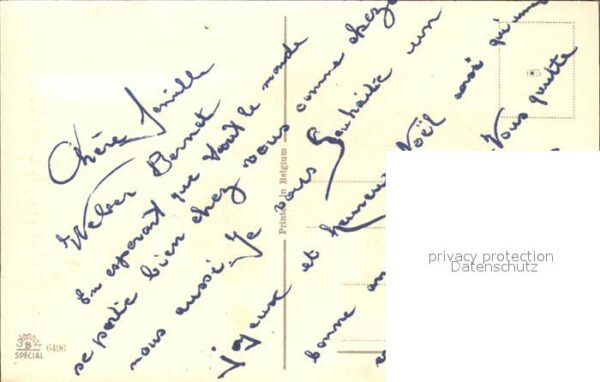 Chère famille
Weber Bernet
En esperant que tout le monde
se porte bien chez vous comme chez
nous aussi, Je vous Souhaite un
joyeux et heureux Noël ainsi qu'une
bonne an
Vous quitte
Printed in Belgium
JB
SPÉCIAL
6496
privacy protection
Datenschutz